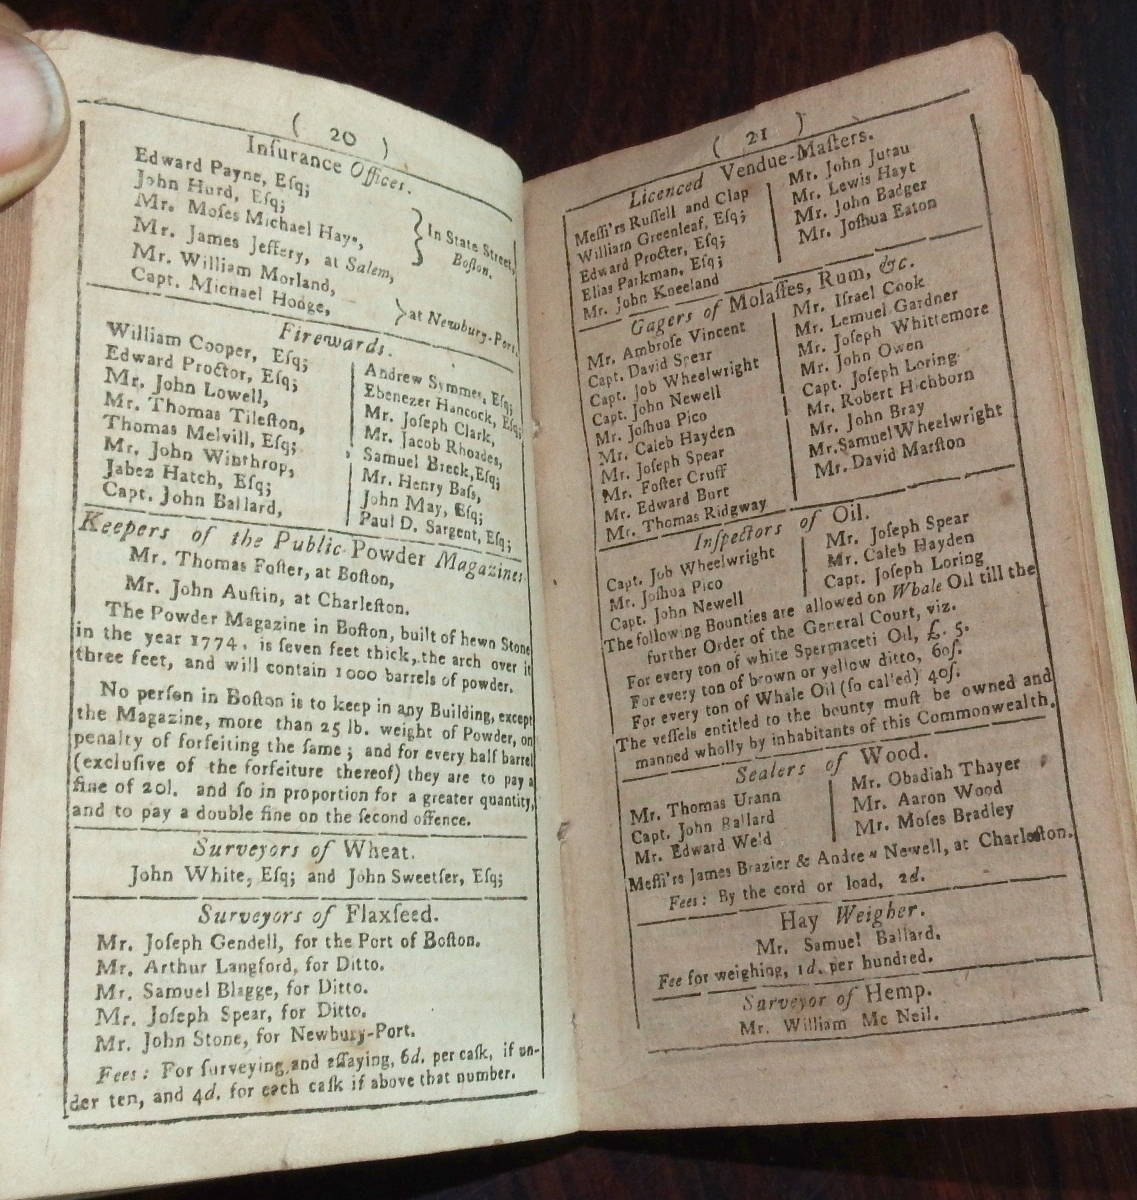 ( 20 )
Inſurance Offices.
Edward Payne, Eſq;
John Hurd, Eſq;
Mr. Moſes Michael Hays,
Mr. James Jeffery, at Salem,
In State Street,
Boſton.
Mr. William Morland,
Capt. Michael Hodge,
at Newbury-Port.
Firewards.
William Cooper, Eſq;
Edward Proctor, Eſq;
Mr. John Lowell,
Mr. Thomas Tileſton,
Thomas Melvill, Eſq;
Mr. John Winthrop,
Jabez Hatch, Eſq;
Capt. John Ballard,
Andrew Symmes, Eſq;
Ebenezer Hancock, Eſq;
Mr. Joſeph Clark,
Mr. Jacob Rhoades,
Samuel Breck, Eſq;
Mr. Henry Baſs,
John May, Eſq;
Paul D. Sargent, Eſq;
Keepers of the Public Powder Magazines.
Mr. Thomas Foſter, at Boſton,
Mr. John Auſtin, at Charleſton.
The Powder Magazine in Boſton, built of hewn Stone
in the year 1774, is ſeven feet thick, the arch over it
three feet, and will contain 1000 barrels of powder.
No perſon in Boſton is to keep in any Building, except
the Magazine, more than 25 lb. weight of Powder, on
penalty of forfeiting the ſame; and for every half barrel
(excluſive of the forfeiture thereof) they are to pay a
fine of 20l. and ſo in proportion for a greater quantity,
and to pay a double fine on the ſecond offence.
Surveyors of Wheat.
John White, Eſq; and John Sweetſer, Eſq;
Surveyors of Flaxſeed.
Mr. Joſeph Gendell, for the Port of Boſton.
Mr. Arthur Langford, for Ditto.
Mr. Samuel Blagge, for Ditto.
Mr. Joſeph Spear, for Ditto.
Mr. John Stone, for Newbury-Port.
Fees: For ſurveying and eſſaying, 6d. per caſk, if un-
der ten, and 4d. for each caſk if above that number.
( 21 )
Licenced Vendue-Maſters.
Meſſi'rs Ruſſell and Clap
William Greenleaf, Eſq;
Edward Procter, Eſq;
Elias Parkman, Eſq;
Mr. John Kneeland
Mr. John Jutau
Mr. Lewis Hayt
Mr. John Badger
Mr. Joſhua Eaton
Gagers of Molaſſes, Rum, &c.
Mr. Ambroſe Vincent
Capt. David Spear
Capt. Job Wheelwright
Capt. John Newell
Mr. Joſhua Pico
Mr. Caleb Hayden
Mr. Joſeph Spear
Mr. Foſter Cruff
Mr. Edward Burt
Mr. Thomas Ridgway
Mr. Iſrael Cook
Mr. Lemuel Gardner
Mr. Joſeph Whittemore
Mr. John Owen
Capt. Joſeph Loring
Mr. Robert Hichborn
Mr. John Bray
Mr. Samuel Wheelwright
Mr. David Marſton
Inſpectors of Oil.
Capt. Job Wheelwright
Mr. Joſhua Pico
Capt. John Newell
Mr. Joſeph Spear
Mr. Caleb Hayden
Capt. Joſeph Loring
The following Bounties are allowed on Whale Oil till the
further Order of the General Court, viz.
For every ton of white Spermaceti Oil, £. 5.
For every ton of brown or yellow ditto, 60ſ.
For every ton of Whale Oil (ſo called) 40ſ.
The veſſels entitled to the bounty muſt be owned and
manned wholly by inhabitants of this Commonwealth.
Sealers of Wood.
Mr. Thomas Urann
Capt. John Ballard
Mr. Edward Weld
Mr. Obadiah Thayer
Mr. Aaron Wood
Mr. Moſes Bradley
Meſſi'rs James Brazier & Andrew Newell, at Charleſton.
Fees: By the cord or load, 2d.
Hay Weigher.
Mr. Samuel Ballard.
Fee for weighing, 1d. per hundred.
Surveyor of Hemp.
Mr. William Mc Neil.